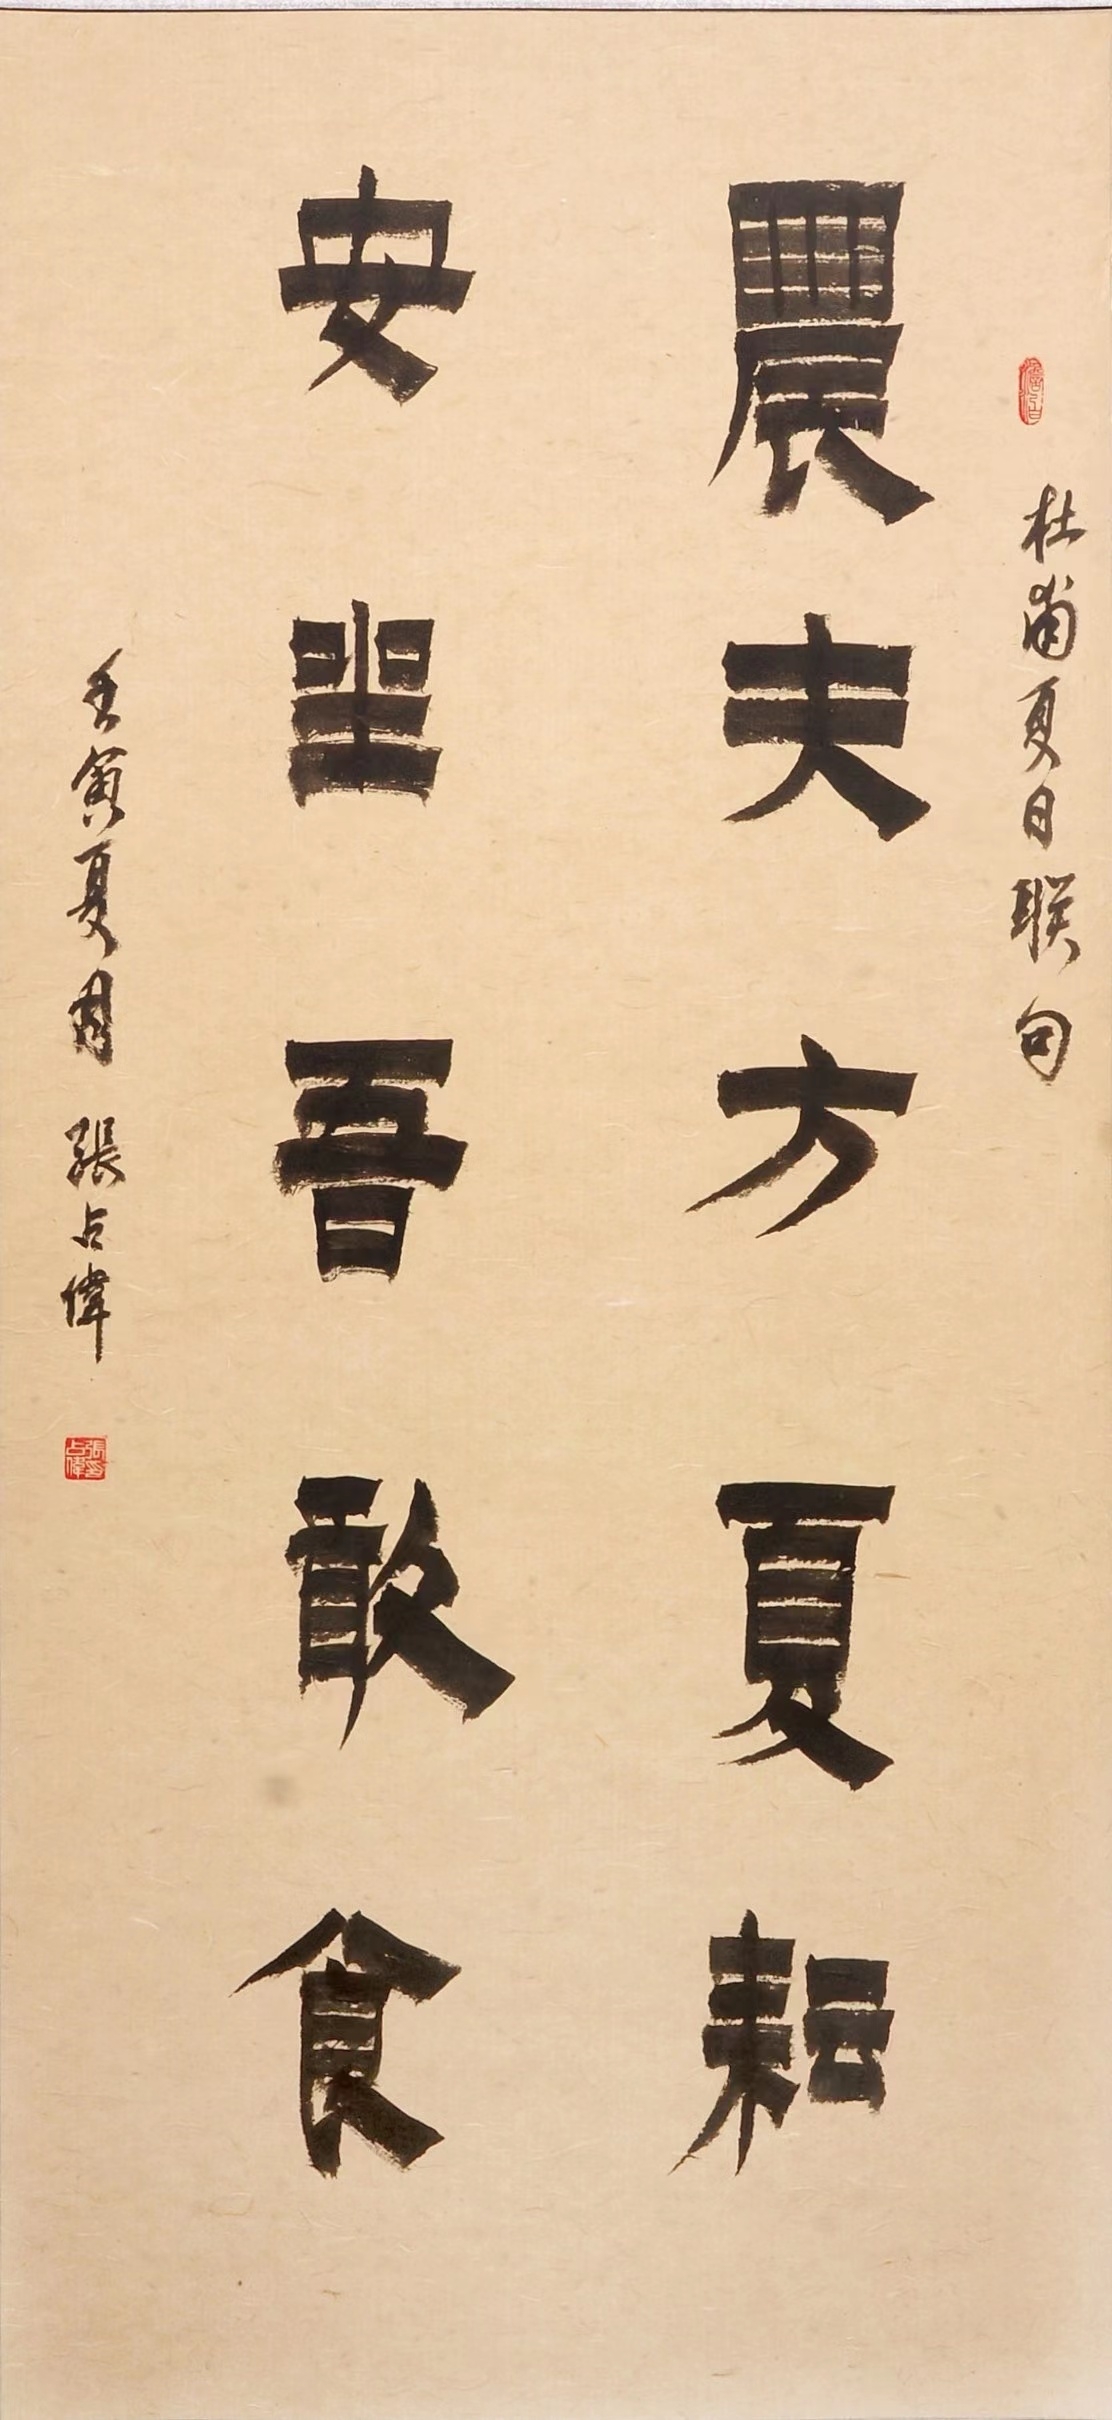 農夫方夏耘
安坐吾敢食
杜甫夏日联句
壬寅夏月 張占偉
張占偉印